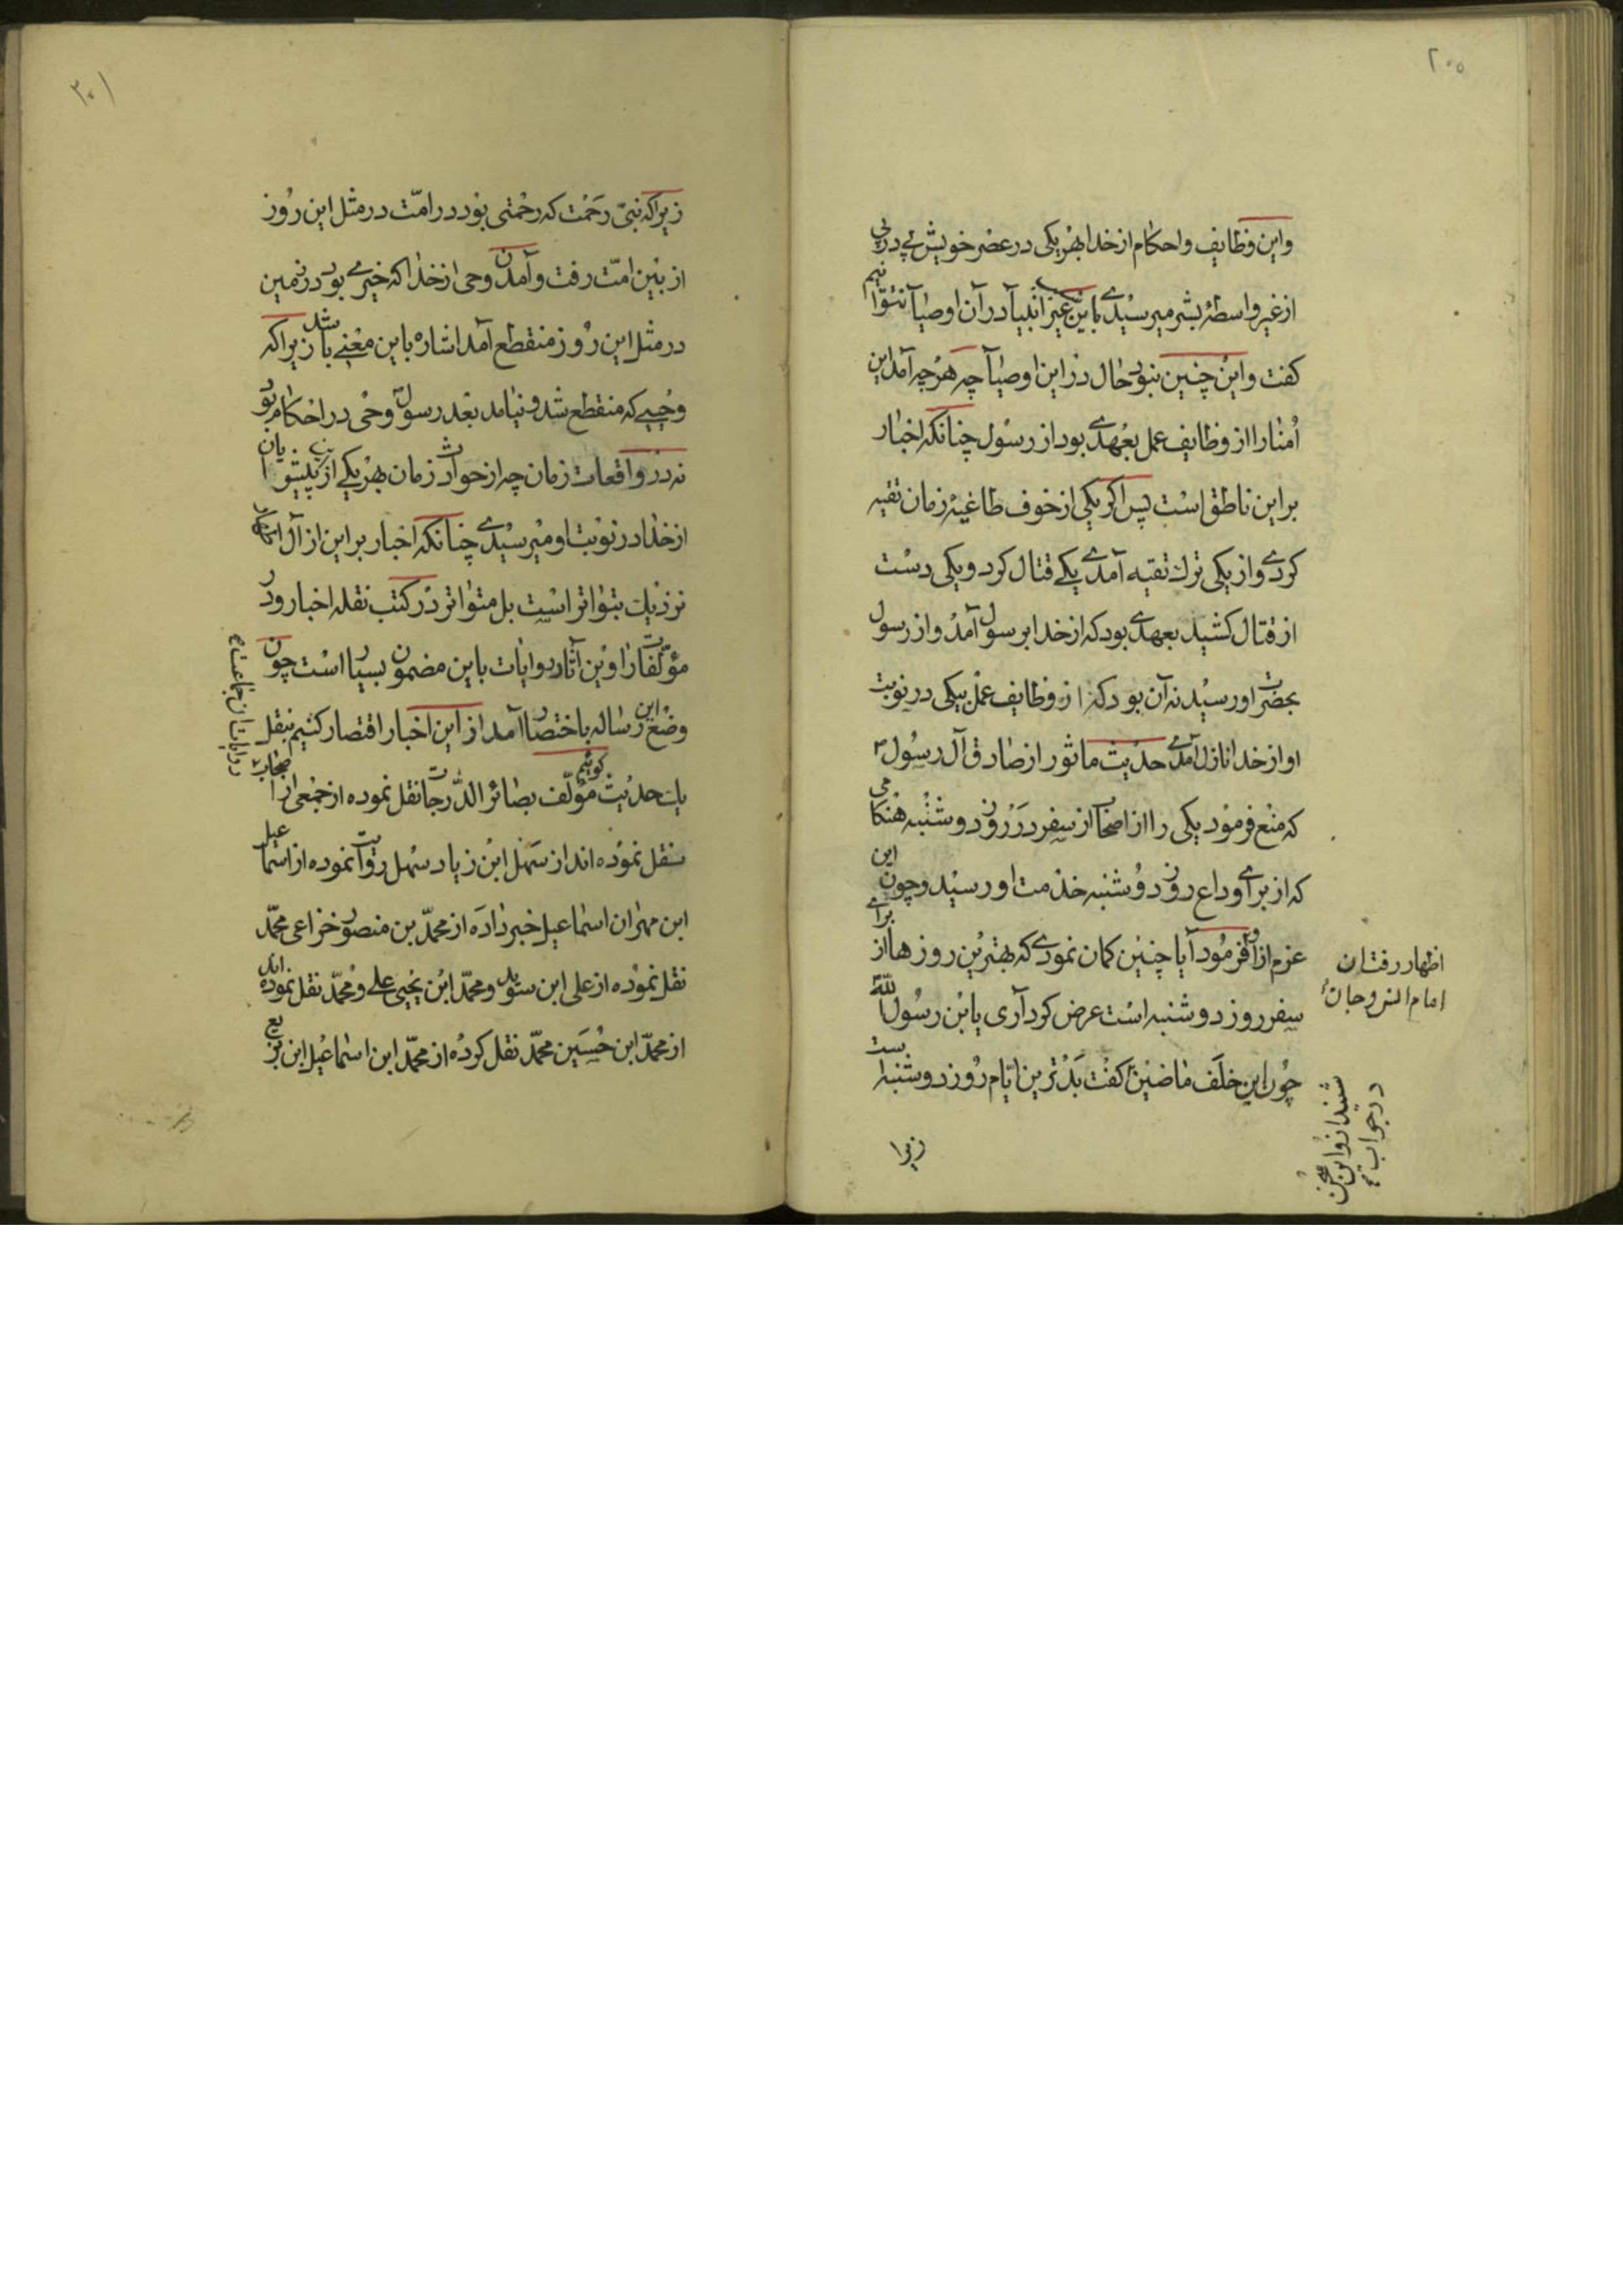 ۲۰۰
واین وظایف واحکام از خدا بهر یکی در عصر خویش پی در پی
از غیر واسطهٔ بشر میرسیدی باین غیر انبیآ در آن اوصیآ نتوانیم
کفت واین چنین نبود حال در این اوصیآ چه هر چه آمد این
اُمنا را از وظایف عمل بعهدی بود از رسول چنانکه اخبار
بر این ناطق است پس اکر یکی از خوف طاغیهٔ زمان تقیه
کردی واز یکی ترك تقیه آمدی یکی قتال کرد و یکی دست
از قتال کشید بعهدی بود که از خدا برسول آمد واز رسول
بحضرت او رسید نه آن بود که از وظایف عمل بیکی در نوبت
او از خدا نازل آمدی حدیث ماثور از صادق آل رسول
که منع فرمود یکی را از اصحاب از سفر در روز دوشنبه هنکامی
که از برای وداع روز دوشنبه خدمت او رسید وچون این
عزم از او فرمود آیا چنین کمان نمودی که بهترین روزها از برای
سفر روز دوشنبه است عرض کرد آری یابن رسول الله
چون این خلف ماضین کفت بدترین ایام روز دوشنبه است
اظهار رفتان
امام انس وجان
شنید از او این سخن
در جواب
زیرا
۳۰۱
زیراکه نبی رحمت که رحمتی بود در امّت در مثل این روز
از بین امّت رفت وآمدن وحی از خدا که خیری بود در زمین
در مثل این روز منقطع آمد اشاره باین معنی باشد زیراکه
وحیی که منقطع شد ونیامد بعد رسول وحی در احکام بود
نه در واقعات زمان چه از حوادث زمان بهر یکی از پیشوایان
از خدا در نوبت او میرسیدی چنانکه اخبار بر این از آل
نزدیك بتواتر است بل متواتر در کتب نقله اخبار ودر
مؤلّفات راوین آثار روایات باین مضمون بسیار است چون
وضع این رساله باختصار آمد از این اخبار اقتصار کنیم بنقل
یك حدیث کوئیم مؤلّف بصائر الدّرجات نقل نموده از جمعی از اصحاب
نقل نموده اند از سهل ابن زیاد سهل روایت نموده از اسماعیل
ابن مهران اسماعیل خبر داده از محمّد بن منصور خزاعی محمّد
نقل نموده از علی ابن سوید ومحمّد ابن یحیی علی ومحمّد نقل نموده اند
از محمّد ابن حسین محمّد نقل کرده از محمّد ابن اسماعیل ابن بزیع